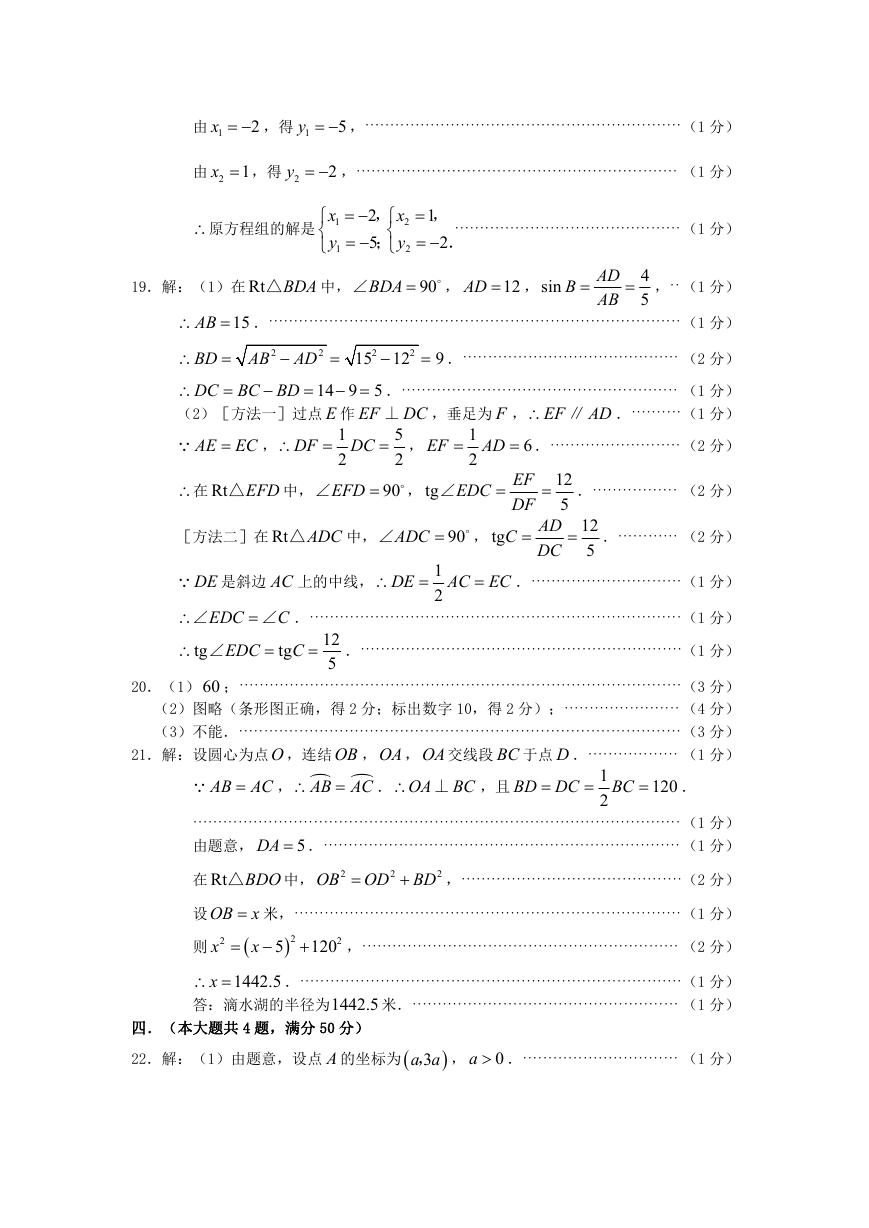 由 x₁ = −2，得 y₁ = −5，……………………………………………………（1 分）
由 x₂ = 1，得 y₂ = −2，……………………………………………………（1 分）
∴原方程组的解是 { x₁ = −2，y₁ = −5； { x₂ = 1，y₂ = −2． ……………………………………（1 分）
19．解：（1）在 Rt△BDA 中，∠BDA = 90°，AD = 12，sin B = AD/AB = 4/5，··（1 分）
∴ AB = 15．……………………………………………………………………（1 分）
∴ BD = √(AB² − AD²) = √(15² − 12²) = 9．……………………………………（2 分）
∴ DC = BC − BD = 14 − 9 = 5．………………………………………………（1 分）
（2）［方法一］过点 E 作 EF ⊥ DC，垂足为 F，∴ EF ∥ AD．……… （1 分）
∵ AE = EC，∴ DF = 1/2 DC = 5/2，EF = 1/2 AD = 6．……………………（2 分）
∴在 Rt△EFD 中，∠EFD = 90°，tg∠EDC = EF/DF = 12/5．……………（2 分）
［方法二］在 Rt△ADC 中，∠ADC = 90°，tgC = AD/DC = 12/5．…………（2 分）
∵ DE 是斜边 AC 上的中线，∴ DE = 1/2 AC = EC．…………………………（1 分）
∴∠EDC = ∠C．………………………………………………………………（1 分）
∴ tg∠EDC = tgC = 12/5．………………………………………………………（1 分）
20．（1）60；……………………………………………………………………（3 分）
（2）图略（条形图正确，得 2 分；标出数字 10，得 2 分）；…………………（4 分）
（3）不能．……………………………………………………………………（3 分）
21．解：设圆心为点 O，连结 OB，OA，OA 交线段 BC 于点 D．………………（1 分）
∵ AB = AC，∴ ⌒AB = ⌒AC．∴ OA ⊥ BC，且 BD = DC = 1/2 BC = 120．
……………………………………………………………………………………（1 分）
由题意，DA = 5．………………………………………………………………（1 分）
在 Rt△BDO 中，OB² = OD² + BD²，……………………………………（2 分）
设 OB = x 米，…………………………………………………………………（1 分）
则 x² = (x − 5)² + 120²，………………………………………………………（2 分）
∴ x = 1442.5．…………………………………………………………………（1 分）
答：滴水湖的半径为 1442.5 米．………………………………………………（1 分）
四．（本大题共 4 题，满分 50 分）
22．解：（1）由题意，设点 A 的坐标为 (a，3a)，a > 0．…………………………（1 分）